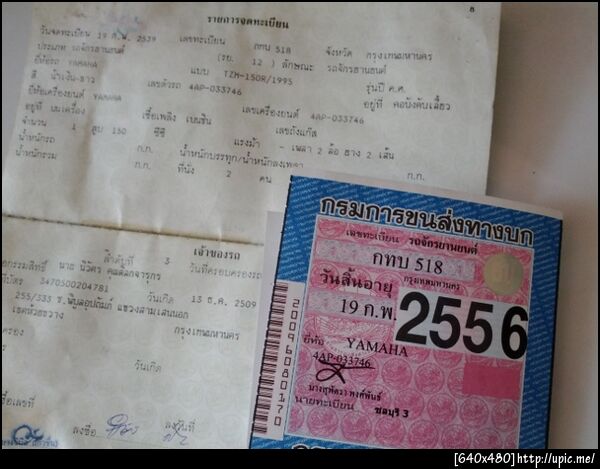 8
รายการจดทะเบียน
วันจดทะเบียน 19 ก.พ. 2539 เลขทะเบียน กทบ 518 จังหวัด กรุงเทพมหานคร
ประเภท รถจักรยานยนต์ (รย. 12 ) ลักษณะ รถจักรยานยนต์
ยี่ห้อรถ YAMAHA แบบ TZM-150R/1995 รุ่นปี ค.ศ.
สี น้ำเงิน-ขาว เลขตัวรถ 4AP-033746 อยู่ที่ คอบังคับเลี้ยว
ยี่ห้อเครื่องยนต์ YAMAHA เลขเครื่องยนต์ 4AP-033746
อยู่ที่ บนเครื่อง เชื้อเพลิง เบนซิน เลขถังแก๊ส
จำนวน 1 สูบ 150 ซีซี แรงม้า - เพลา 2 ล้อ ยาง 2 เส้น
น้ำหนักรถ ก.ก. น้ำหนักบรรทุก/น้ำหนักลงเพลา ก.ก.
น้ำหนักรวม ก.ก. ที่นั่ง 2 คน
เจ้าของรถ
ลำดับที่ 3 วันที่ครอบครองรถ
นาย นิวัตร
3470500204781 วันเกิด 13 ธ.ค. 2509
255/333 แขวงสามเสนนอก
เขตห้วยขวาง กรุงเทพมหานคร
วันเกิด
ลงชื่อ วันที่
กรมการขนส่งทางบก
เลขทะเบียน รถจักรยานยนต์
กทบ 518
กรุงเทพมหานคร
วันสิ้นอายุ
19 ก.พ. 2556
ยี่ห้อ YAMAHA
4AP-033746
นายทะเบียน ชลบุรี 3
20096080170
[640x480]http://upic.me/